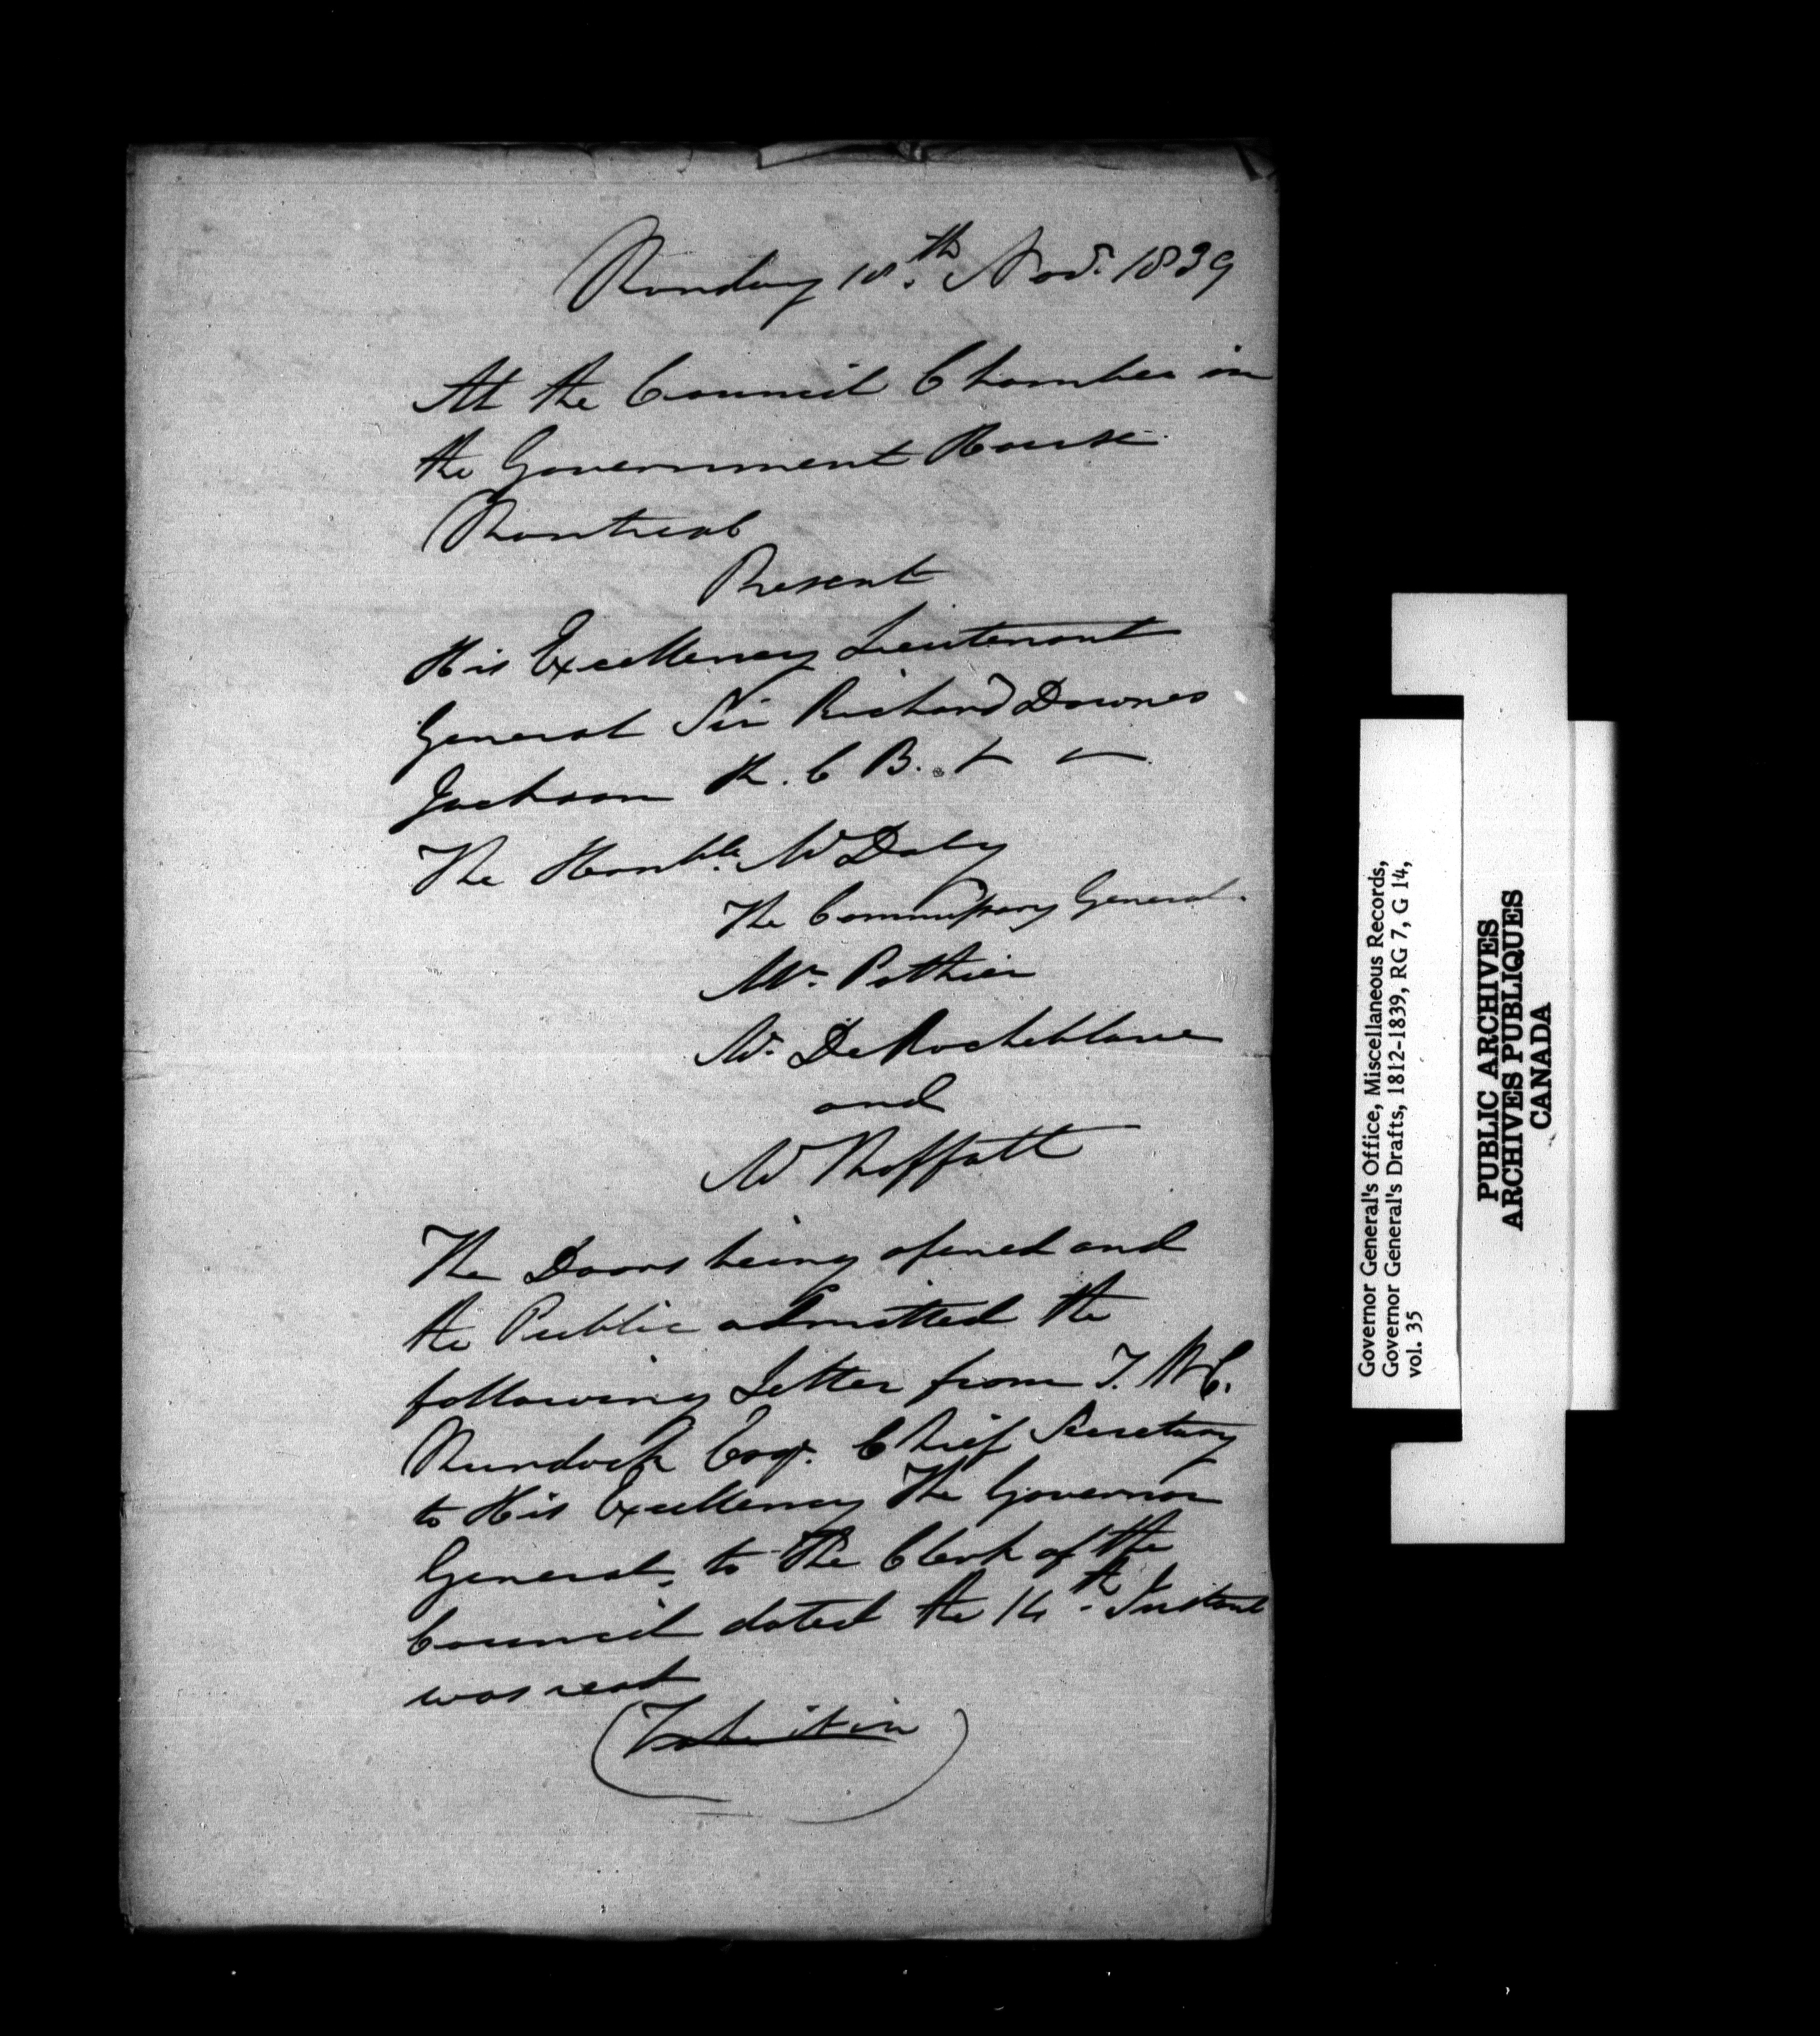 Monday 18th. Novr. 1839
At the Council Chamber in
the Government House
Montreal
Present
His Excellency Lieutenant
General Sir Richard Downes
Jackson K. C B. &
The Honble. Mr Daly
The Commissary General.
Mr. Pothier
Mr. De Rocheblave
and
Mr Moffatt
The Doors being opened and
the Public admitted the
following Letter from T. W C.
Murdoch Esqr. Chief Secretary
to His Excellency The Governor
General, to The Clerk of the
Council dated the 14th. Instant
was read
(Take it in)
Governor General's Office, Miscellaneous Records,
Governor General's Drafts, 1812-1839, RG 7, G 14,
vol. 35
PUBLIC ARCHIVES
ARCHIVES PUBLIQUES
CANADA